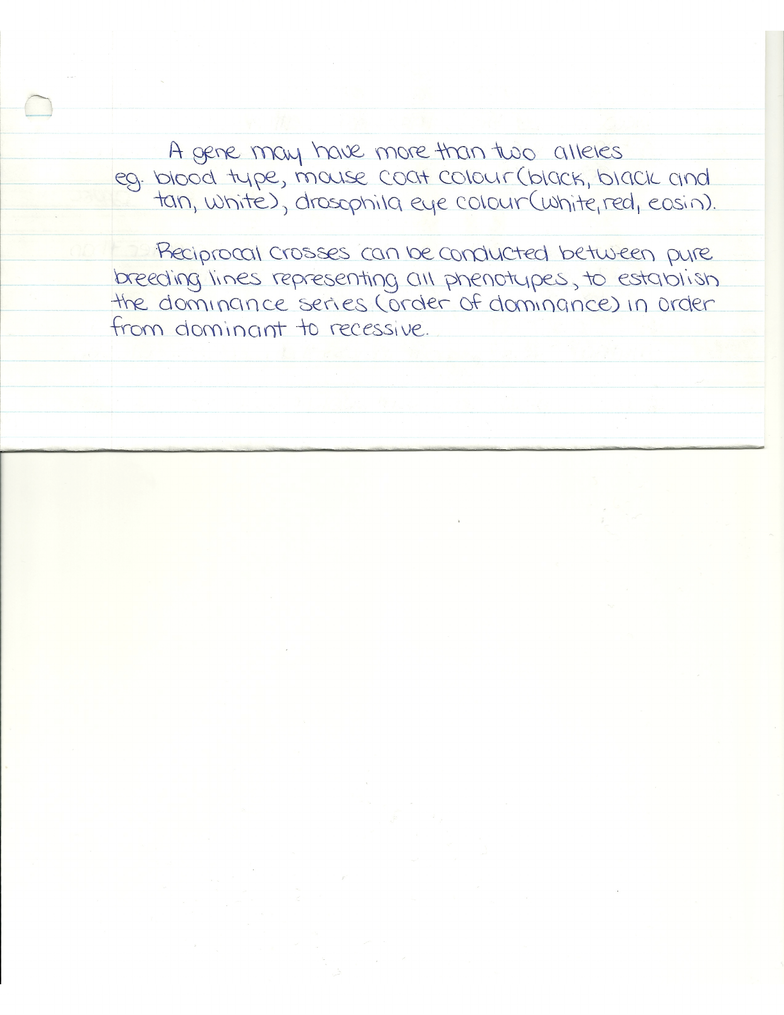 A gene may have more than two alleles
eg. blood type, mouse coat colour (black, black and
tan, white), drosophila eye colour (white, red, eosin).
Reciprocal crosses can be conducted between pure
breeding lines representing all phenotypes, to establish
the dominance series (order of dominance) in order
from dominant to recessive.